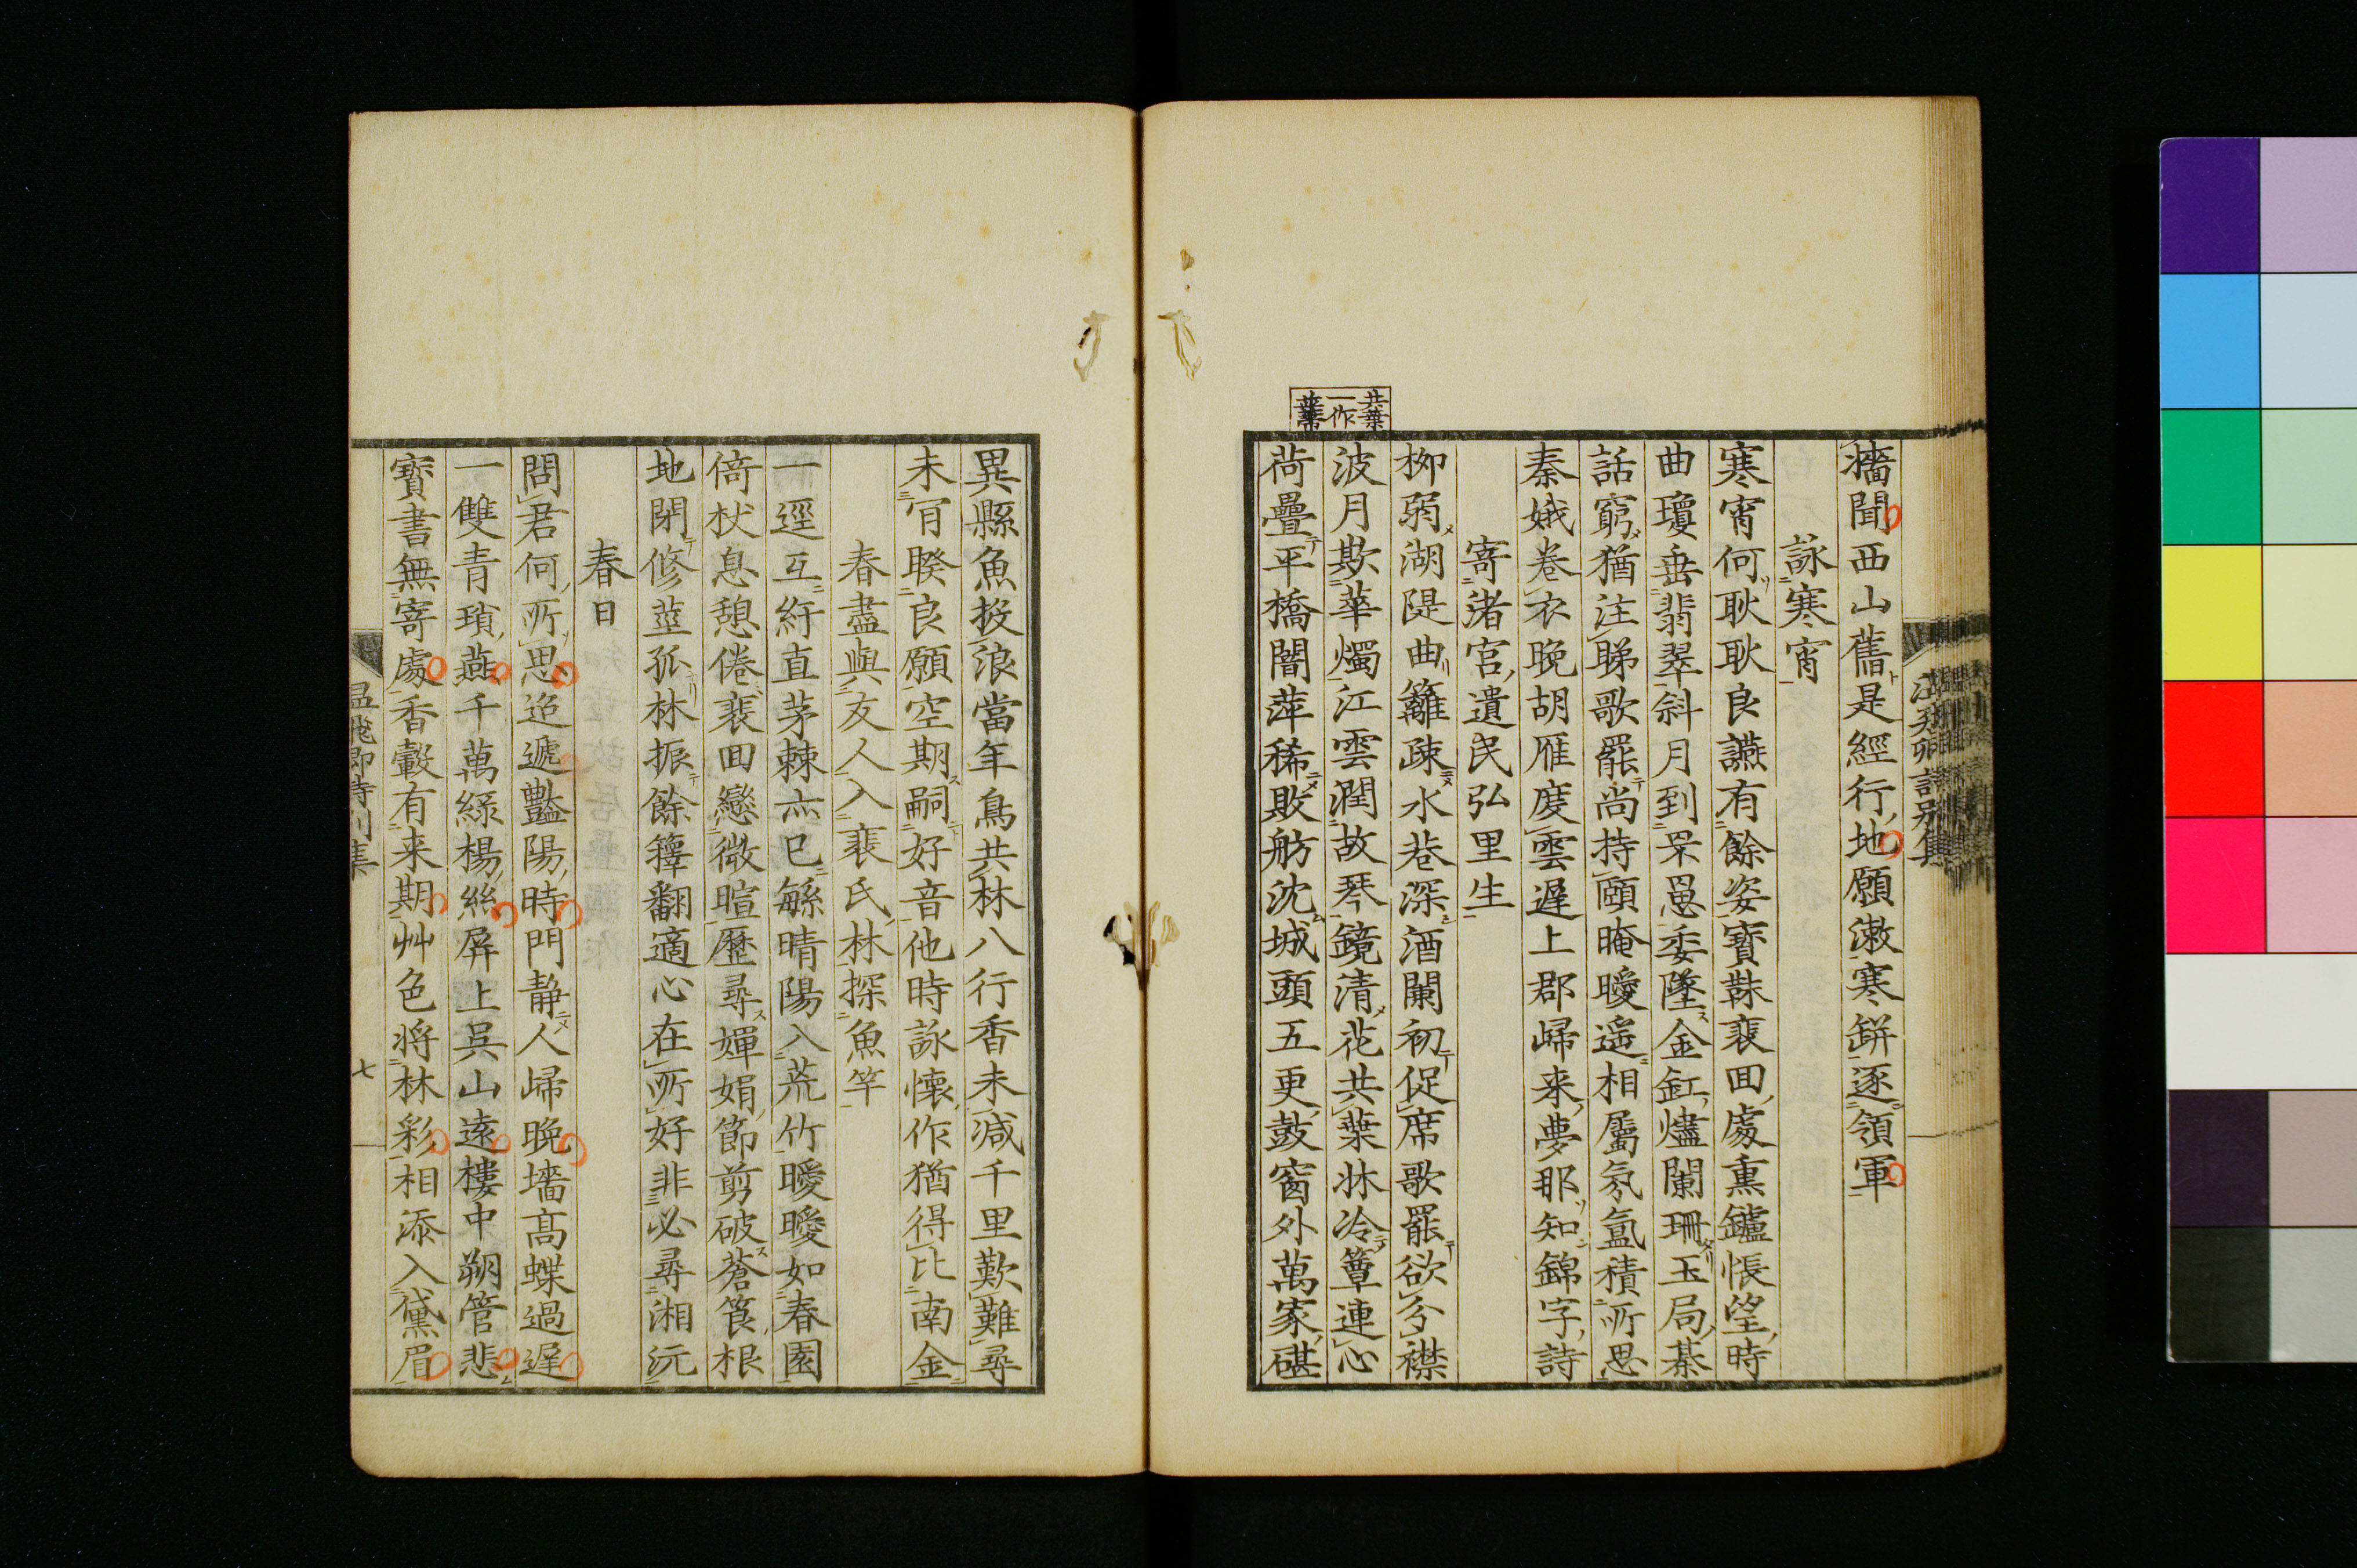 牆聞西山舊是經行地願漱寒缾逐領軍
詠寒宵
寒宵何耿耿良讌有餘姿寶靺裵回處熏鑪悵望時
曲瓊垂翡翠斜月到罘罳委墜金釭燼闌珊玉局棊
話窮猶注睇歌罷尚持頤晻曖遥相屬氛氲積所思
秦娥卷衣晩胡雁度雲遲上郡歸来夢那知錦字詩
寄渚宮遺民弘里生
柳弱湖隄曲籬疎水巷深酒闌初促席歌罷欲分襟
波月欺華燭江雲潤故琴鏡清花共葉牀冷簟連心
荷疊平橋闇萍稀敗舫沈城頭五更鼓窗外萬家碪
共葉
一作
並蔕
異縣魚投浪當年鳥共林八行香未滅千里歎難尋
未肎睽良願空期嗣好音他時詠懷作猶得比南金
春盡與友人入裵氏林探魚竿
一逕互紆直茅棘亦已緐晴陽入荒竹曖曖如春園
倚杖息憩倦裵回戀微暄歷尋嬋娟節剪破蒼筤根
地閉修莖孤林振餘籜翻適心在所好非必尋湘沅
春日
問君何所思迢遞豔陽時門静人歸晩墻高蝶過遲
一雙青瑣燕千萬緑楊絲屏上吳山遠樓中朔管悲
寶書無寄處香轂有来期艸色将林彩相添入黛眉
七